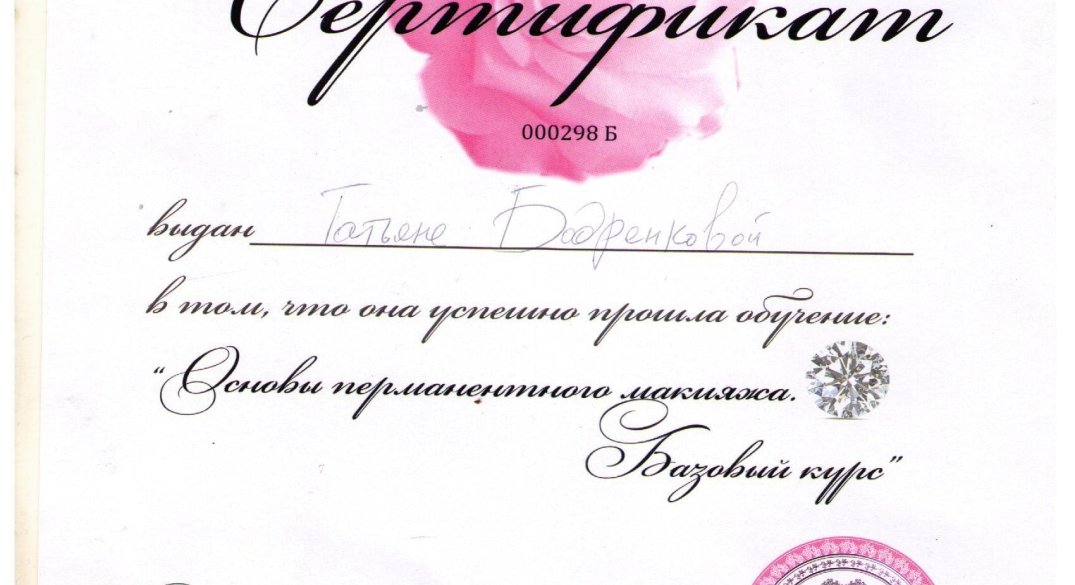 Сертификат
000298 Б
выдан Татьяне Бодренковой
в том, что она успешно прошла обучение:
“Основы перманентного макияжа.
Базовый курс”